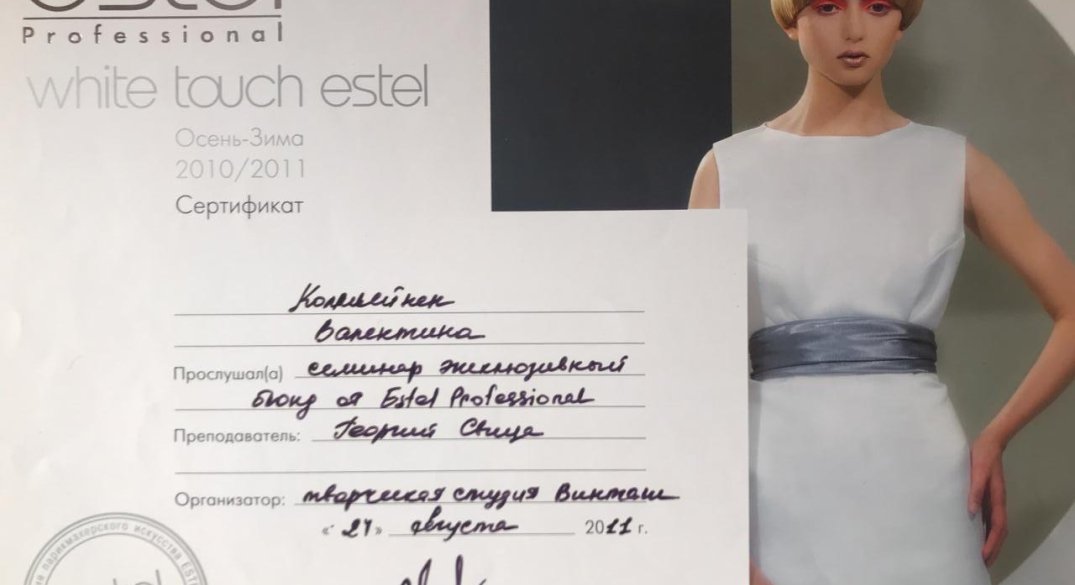 estel
Professional
white touch estel
Осень-Зима
2010/2011
Сертификат
Валентина
Прослушал(а) семинар эксклюзивный
блонд от Estel Professional
Преподаватель: Георгий
Организатор: творческая студия
августа 2011 г.
парикмахерского искусства ESTEL